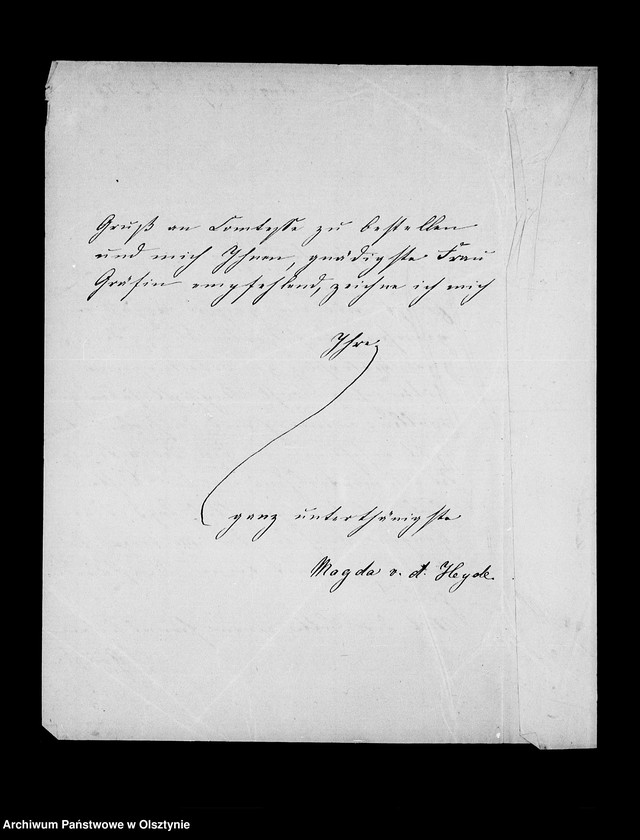 Gruß an Comtesse zu bestellen
und mich Ihnen, gnädigste Frau
Gräfin empfehlend, zeichne ich mich
Ihre
ganz unterthänigste
Magda v. d. Heyde.
Archiwum Państwowe w Olsztynie